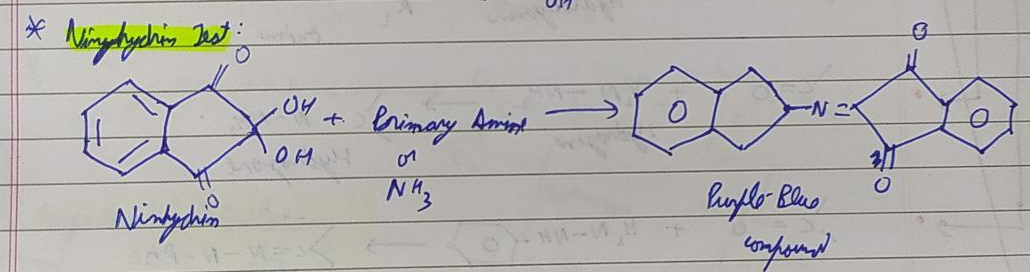 OH
* Ninhydrin Test:
O
OH
OH
O
Ninhydrin
+ Primary Amine
or
NH3
O
-N=
O
O
O
Purple-Blue
compound